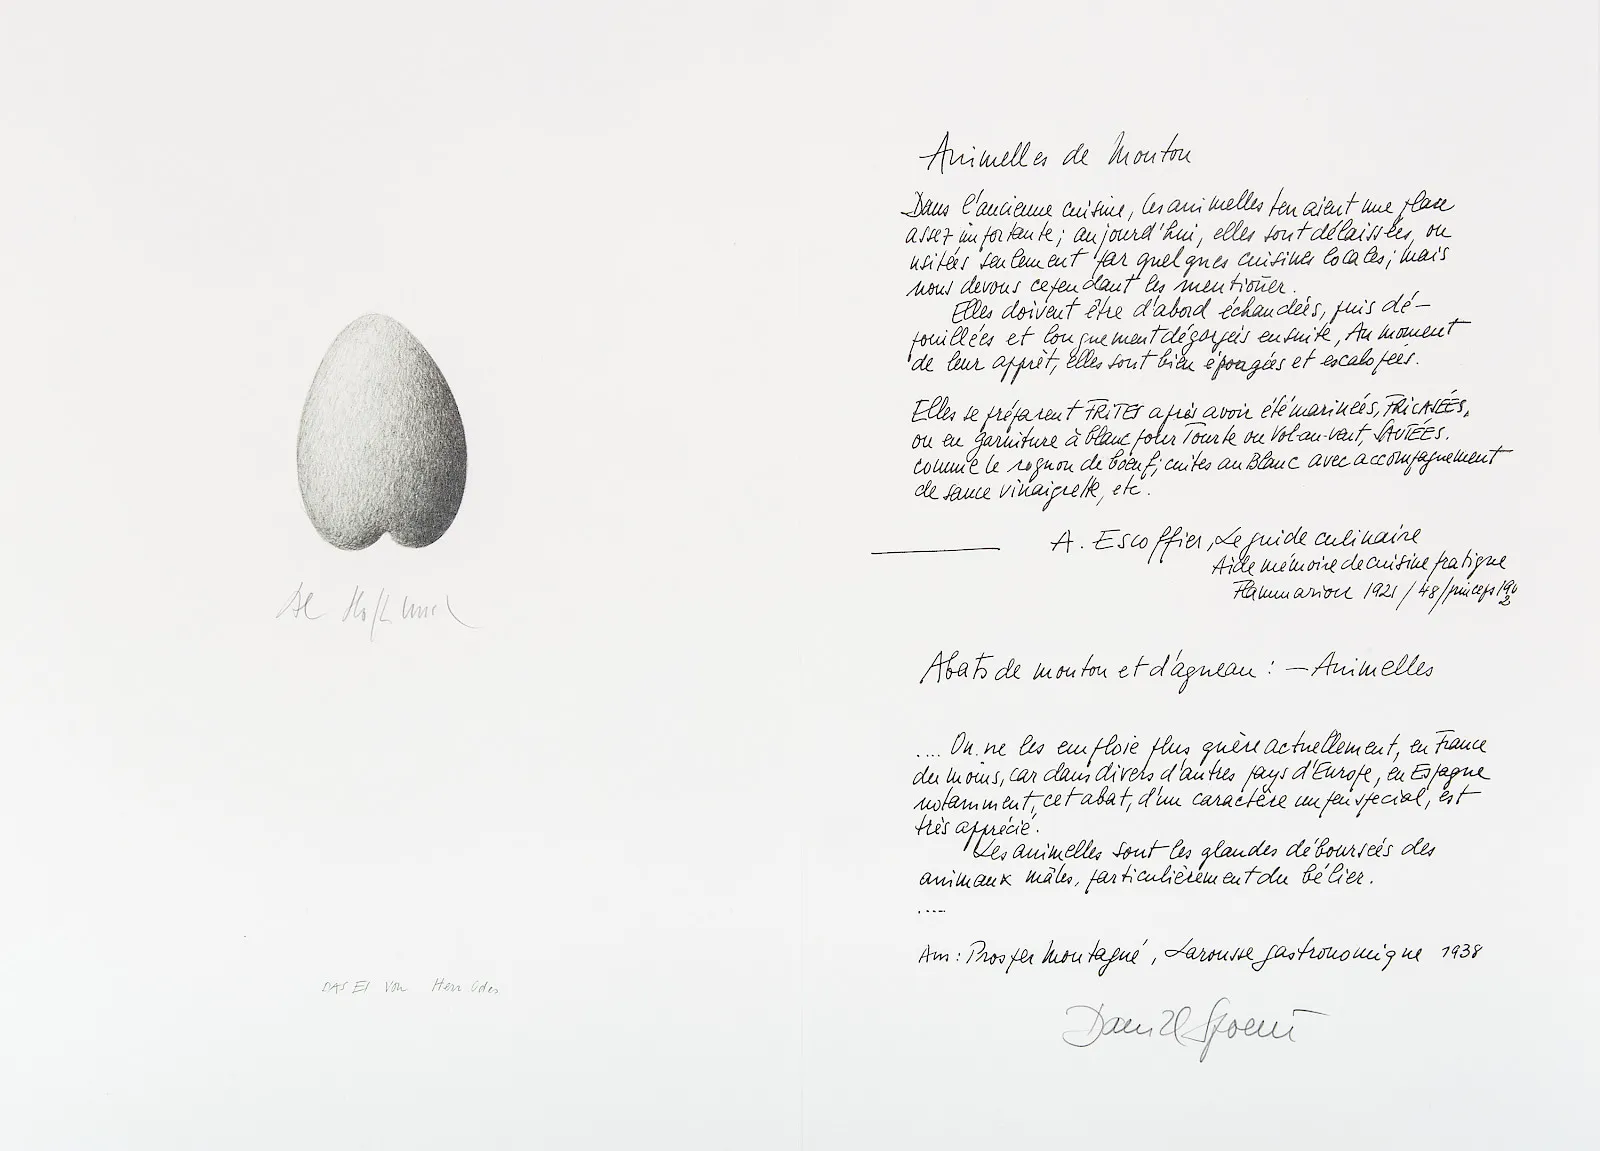 DAS EI von Herr Odes
Animelles de Mouton
Dans l'ancienne cuisine, les animelles tenaient une place
assez importante; aujourd'hui, elles sont délaissées, ou
usitées seulement par quelques cuisines locales; mais
nous devons cependant les mentioñer.
Elles doivent être d'abord échaudées, puis dé-
pouillées et longuement dégorgées ensuite, Au moment
de leur apprêt, elles sont bien épongées et escalopées.
Elles se préparent FRITES après avoir été marinées, FRICASÉES,
ou en garniture à blanc pour Tourte ou Vol-au-vent, SAUTÉES.
comme le rognon de bœuf; cuites au Blanc avec accompagnement
de sauce vinaigrette, etc.
A. Escoffier, Le guide culinaire
Aide mémoire de cuisine pratique
Flammarion 1921 / 48 / princeps 1902
Abats de mouton et d'agneau: — Animelles
.... On ne les emploie plus guère actuellement, en France
du moins, car dans divers d'autres pays d'Europe, en Espagne
notamment, cet abat, d'un caractère un peu spécial, est
très apprécié.
Les animelles sont les glandes débourseés des
animaux mâles, particulièrement du bélier.
....
Am: Prosper Montagné, Larousse gastronomique 1938
Daniel Spoerri